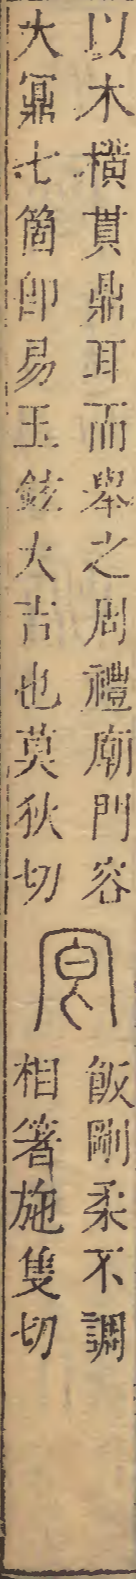 以木橫貫鼎耳而舉之周禮廟門容
大鼏七箇卽易玉鉉大吉也莫狄切
冟
飯剛柔不調
相箸施隻切